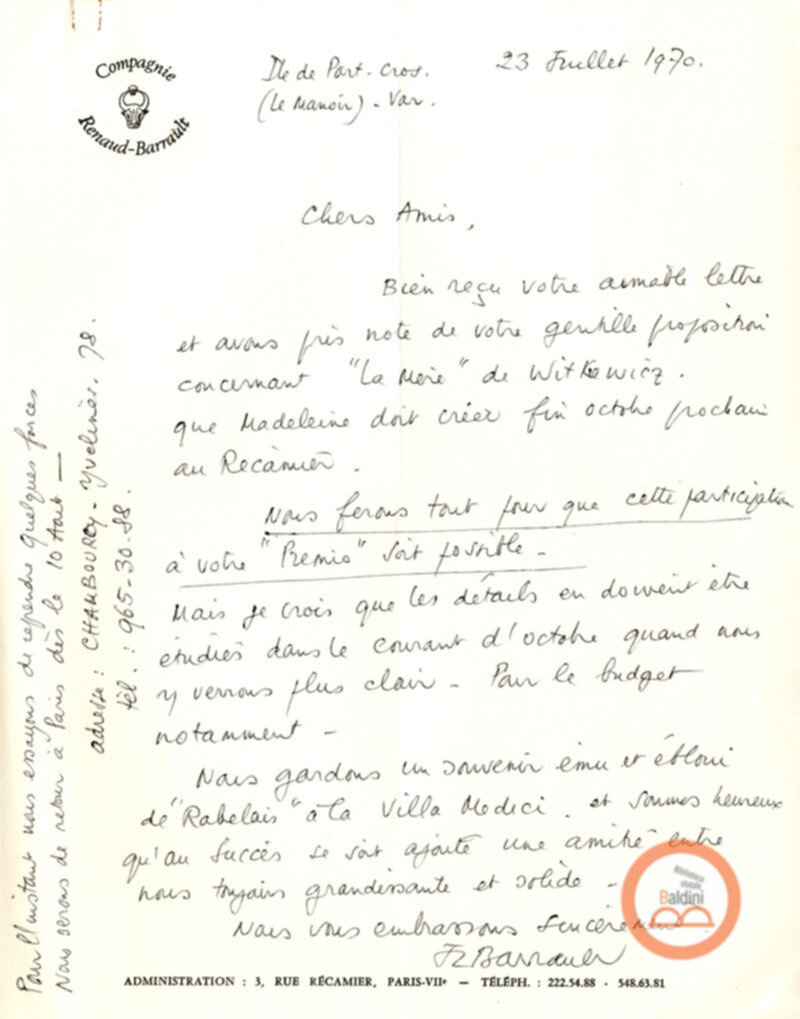 Compagnie
Renaud-Barrault
Ile de Port-Cros.
(Le Manoir) - Var.
23 Juillet 1970.
Chers Amis,
Bien reçu votre aimable lettre
et avons pris note de votre gentille proposition
concernant "La Mère" de Witkewicz.
que Madeleine doit créer fin octobre prochain
au Récamier.
Nous ferons tout pour que cette participation
à votre "Premio" soit possible -
Mais je crois que les détails en doivent être
étudiés dans le courant d'octobre quand nous
y verrons plus clair - Pour le budget
notamment -
Nous gardons un souvenir ému et ébloui
de "Rabelais" à la Villa Medici. et sommes heureux
qu'au succès se soit ajouté une amitié entre
nous toujours grandissante et solide -
Nous vous embrassons sincèrement
JLBarrault
Pour l'instant nous essayons de reprendre quelques forces
Nous serons de retour à Paris dès le 10 Août -
adresse : CHAMBOURCY - Yvelines. 78.
tél. : 965-30.88.
Biblioteca
statale
Baldini
ADMINISTRATION : 3, RUE RÉCAMIER, PARIS-VIIe — TÉLÉPH. : 222.54.88 - 548.63.81